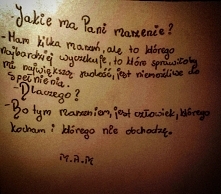 -Jakie ma Pani marzenie?
-Mam kilka marzeń, ale to którego
najbardziej wyczekuje, to które sprawiłoby
mi największą radość, jest niemożliwe do
spełnienia.
-Dlaczego?
-Bo tym marzeniem, jest człowiek, którego
kocham i którego nie obchodzę.
M.A.M